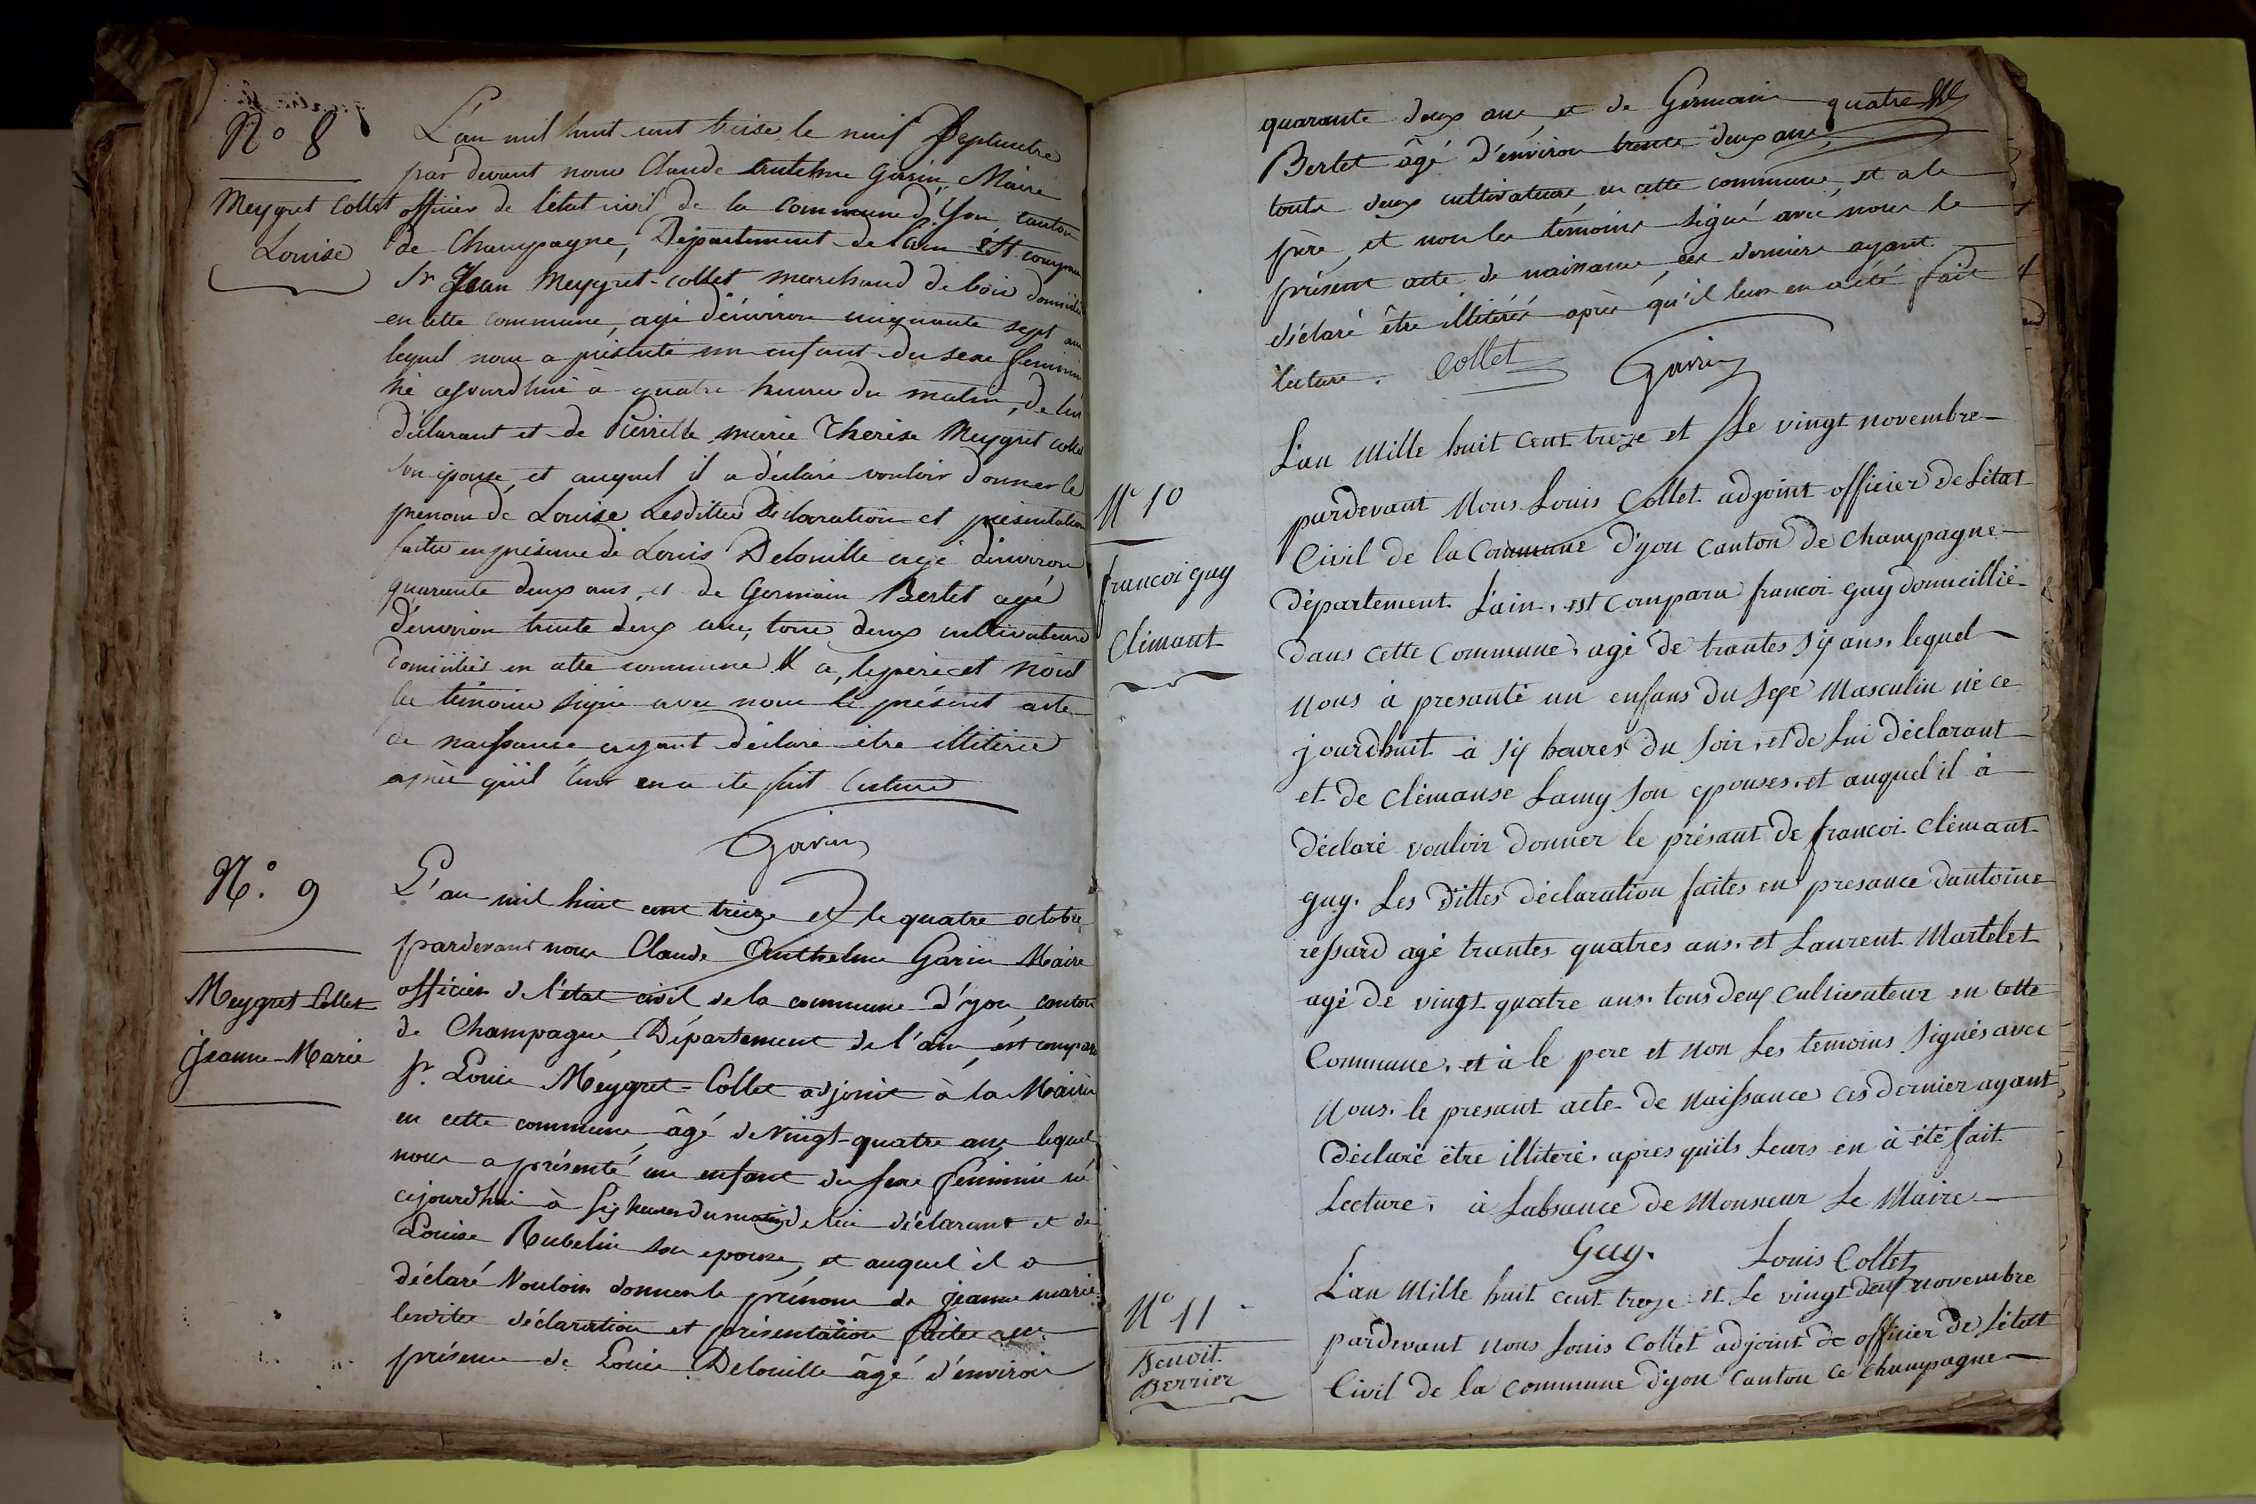 N° 8
Meygret Collet
Louise
L'an mil huit cent treise le neuf Septembre
par devant nous Claude Antelme Garin Maire
officier de l'état civil de la commune d'yon canton
de Champagne, Département de l'ain est comparu
Sr Jean Meygret-Collet marchand de bois domicilié
en cette commune, agé d'environ cinquante sept ans
lequel nous a présenté un enfant du sexe feminin
né cejourdhui à quatre heures du matin, de lui
déclarant et de Pierrette marie Therese Meygret Collet
son épouse et auquel il a déclaré vouloir donner le
prenom de Louise Lesdittes Déclaration et présentation
faites en présence de Louis Delouille agé d'environ
quarante deux ans, et de Germain Bertet agé
d'environ trente deux ans, tous deux cultivateurs
domiciliés en cette commune et a, le père et non
les témoins signé avec nous le présent acte
de naissance ayant déclaré etre illiterés
après qu'il leur en a été fait lecture
Garin
N.° 9
Meygret Collet
Jeanne-Marie
L'an mil huit cent treize et le quatre octobre
pardevant nous Claude Anthelme Garin Maire
officier de l'état civil de la commune d'yon canton
de Champagne, Département de l'ain, est comparu
Sr. Louis Meygret-Collet adjoint à la Mairie
en cette commune âgé de vingt-quatre ans lequel
nous a présenté un enfant du sexe féminin né
cejourdhui à six heures du matin de lui déclarant et de
Louise Rubelin son epouse, et auquel il a
déclaré vouloir donner le prénom de jeanne marie
lesdites déclaration et présentation faites en
présence de Louis Delouille âgé d'environ
quarante deux ans et de Germain quatre
Bertet âgé d'environ trente deux ans,
touts deux cultivateurs en cette commune, et a le
père, et non les témoins signé avec nous le
présent acte de naissance, ces derniers ayant
déclaré être illitérés après qu'il leur en a été fait
lecture. Collet Garin
N° 10
francoi guy
Clémant
L'an Mille huit Cent treze et Le vingt novembre
pardevant Nous Louis Collet adjoint officier de Létat
Civil de la Commune d'yon Canton de Champagne
Département L'ain, est Comparu francoi guy domicillié
dans cette Commune, agé de trantes six ans, lequel
nous à presanté un enfans du Sexe Masculin né ce
jourdhuit à six heures du Soir, et de Lui déclarant
et de Clémanse Lamy Son epouses, et auquel il à
Déclaré vouloir donner le présant de francoi Clémant
guy. Les dittes déclaration faites en presance dantoine
ressard agé trantes quatres ans, et Laurent Martelet
agé de vingt quatre ans, tous deux Cultivateur en Cette
Commune, et à le pere et Non Les temoins Signés avec
Nous, le presant acte de Naissance Ces dernier ayant
Déclaré être illiteré, apres quils Leurs en à été fait
Lecture, à Labsance de Monsieur Le Maire
Guy. Louis Collet
N° 11
Benoit
Berrier
L'an Mille huit cent treze et Le vingt deux novembre
pardevant nous Louis Collet adjoint de officier de Létat
Civil de la Commune d'yon Canton de Champagne